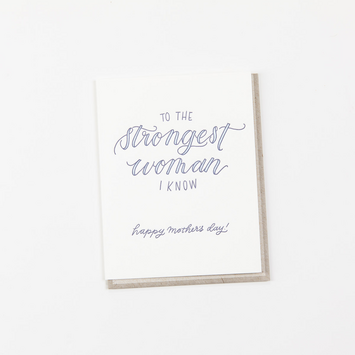 TO THE
strongest
woman
I KNOW
happy mother's day!